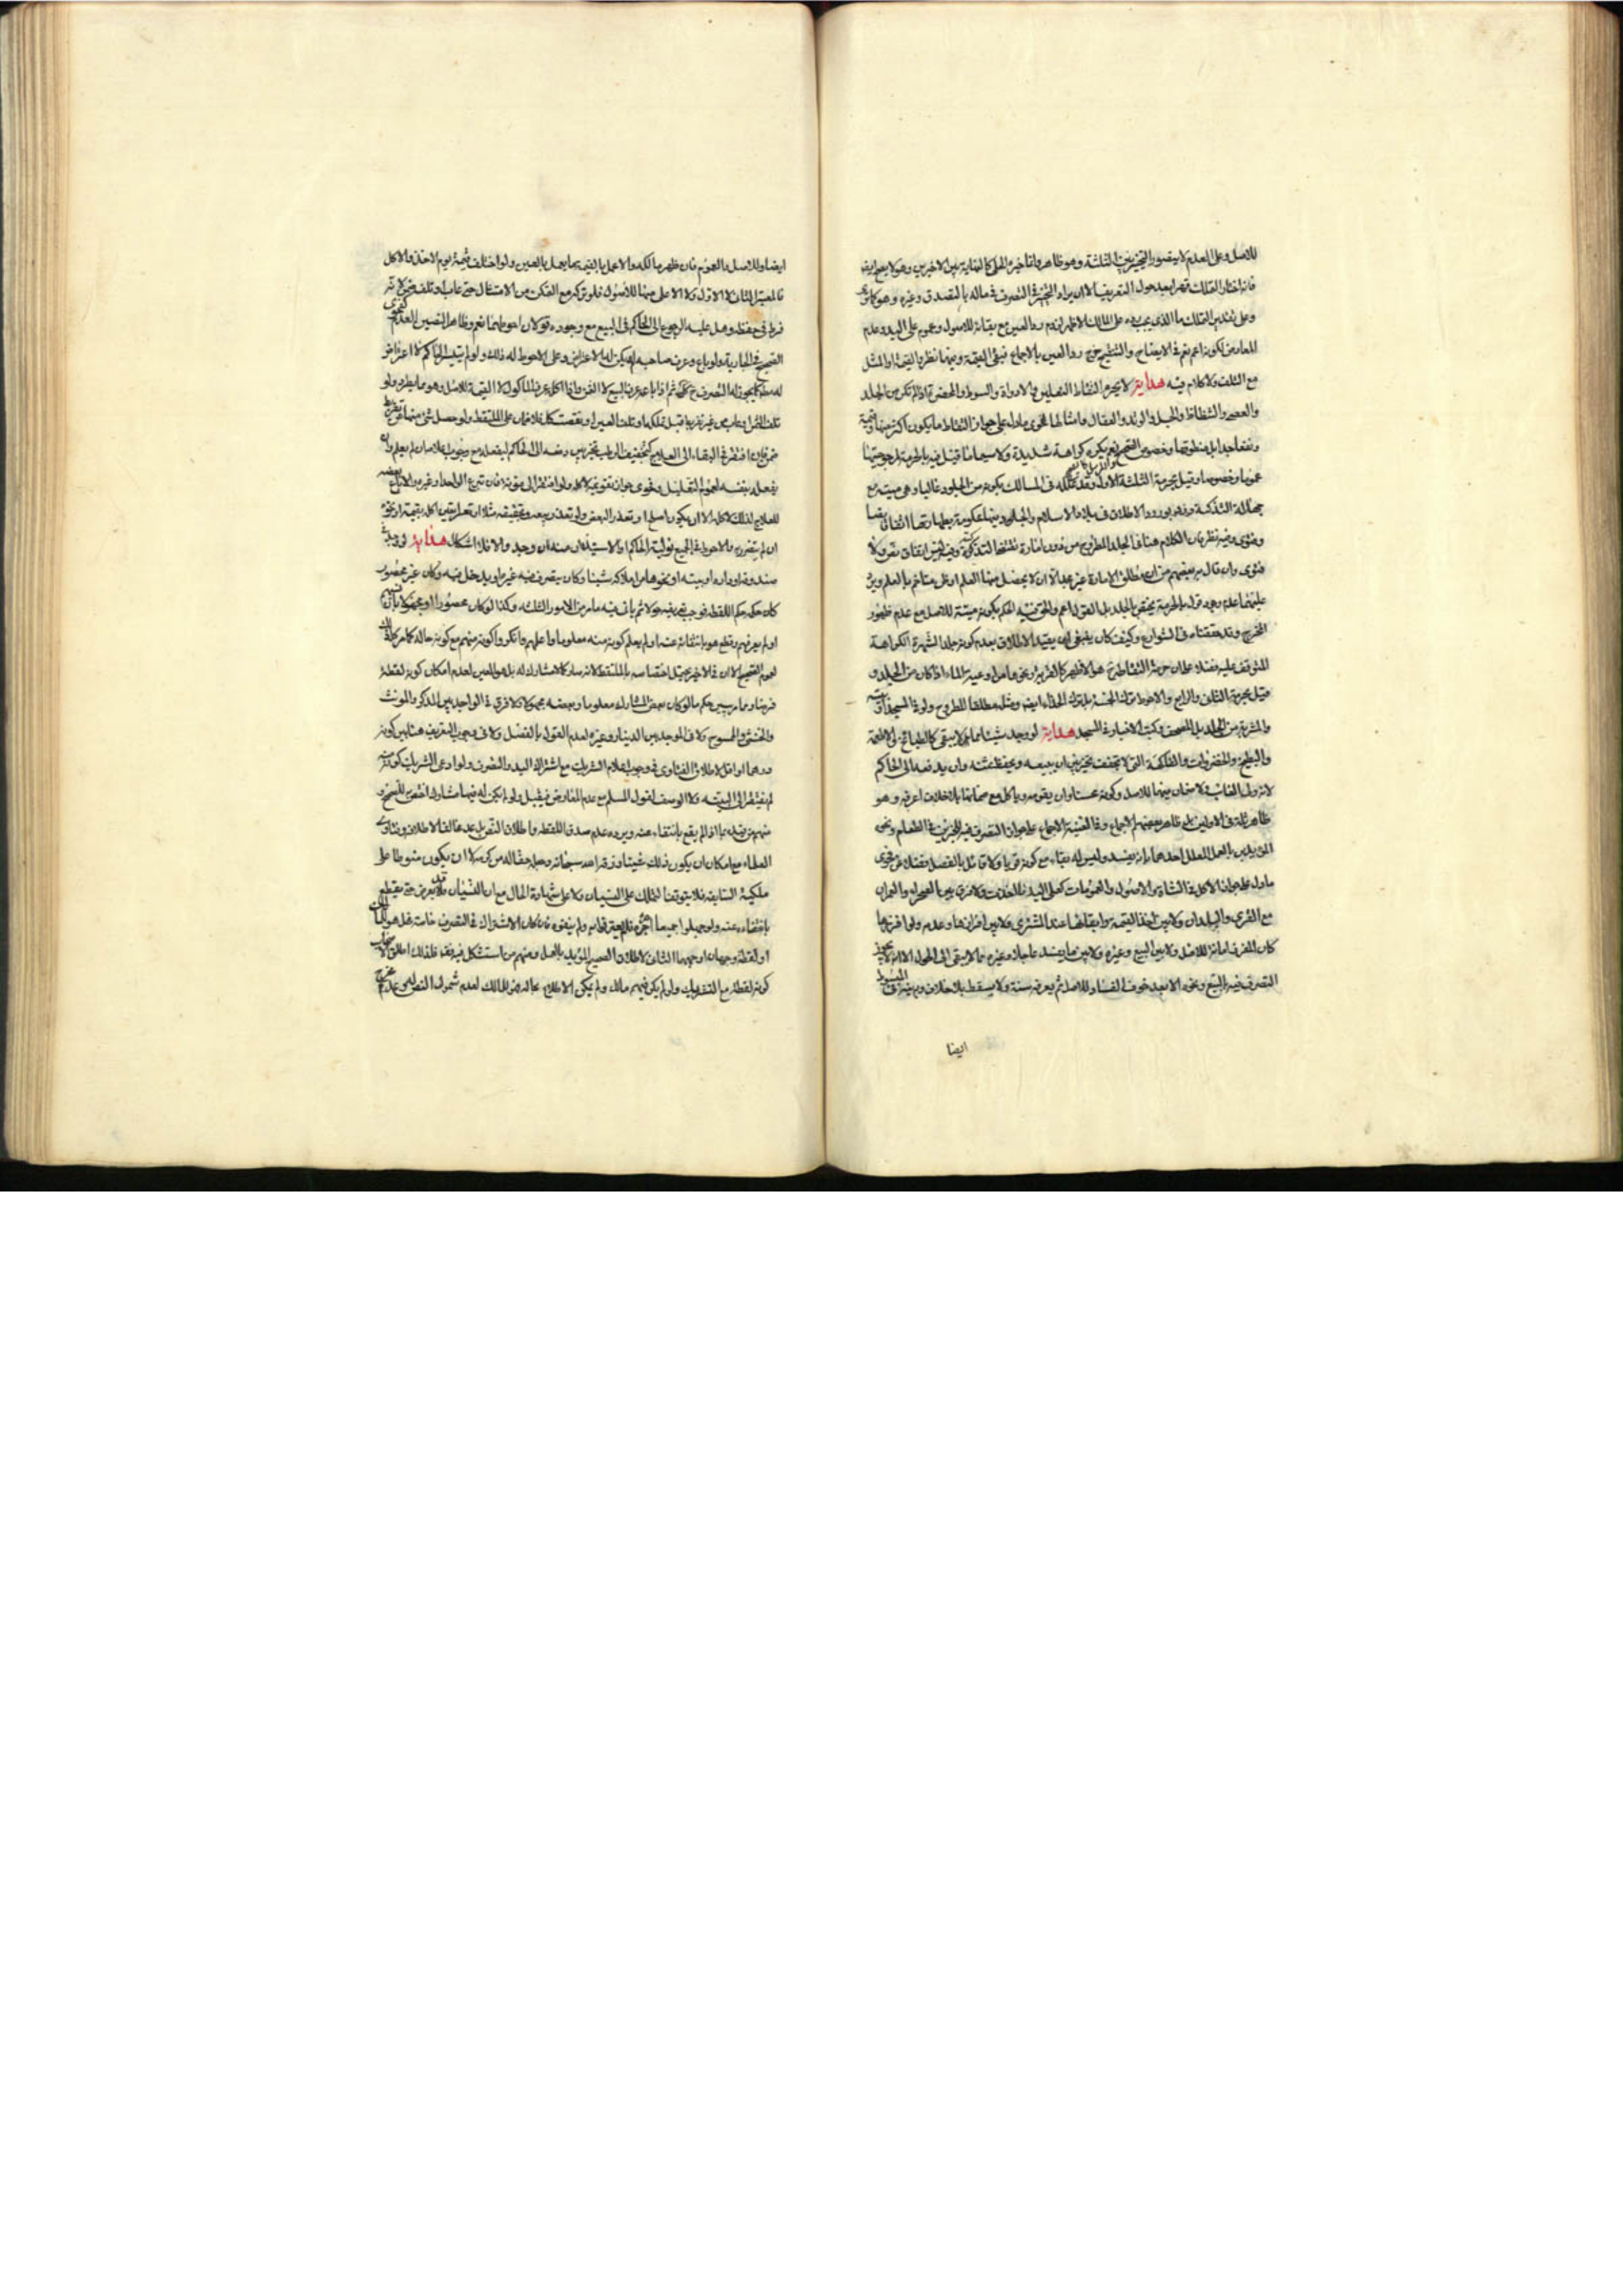 للاصل وعلى العدم لا يتصور التخيير بين الثلثة وهو ظاهر واما خيره الحلي كالنهاية بين الاخيرين وهو لا
فان اختار التملك قهرا بعد حول التعريف الا ان يراد التخيير في التصرف في ماله بالتصدق وغيره وهو كما
وعلى تقدير التملك ما الذي يجب رده على المالك الاظهر لزوم رد العين مع بقائه للاصول وعموم على اليد وعدم
المعارض لكونه اعم نعم في الايضاح والتنقيح خرج رد العين بالاجماع فبقى القيمة وفيهما نظر والقيمة او المثل
مع التلف ولا كلام فيه هداية لا يحرم التقاط النعلين والادواة والسوط والمخصرة اذا لم تكن من الجلد
والعصى والشظاظ والحبل والوتد والعقال وامثالها لفحوى ما دل على جواز التقاط ما يكون اكثر منها قيمة
ونفعا جدا بل منطوقها وخصوص الصحيح نعم يكره كراهة شديدة ولا سيما ما قيل فيه بالحرمة
عموما وخصوصا وقيل بحرمة الثلثة الاول وقد علله في المسالك بكونه من الجلود غالبا وهى ميتة مع
جهالة التذكية وزاد بورود الاطلاق في بلاد الاسلام والجلود فيها محكومة بطهارتها اتفاقا نصا
وفتوى وفيه نظر فان الكلام هنا في الجلد المطروح من دون امارة تقتضى التذكية وفيه ليس اتفاق نص ولا
فتوى وان قال به بعضهم من ان مطلق الامارة غير عبرة الا ان لا يحصل منها العلم او ظن متاخم بالعلم ويرد
عليهما عدم وجود قول بالحرمة يختص بالجلد بل القول اعم والحق فيه الحكم بكونه ميتة للاصل مع عدم ظهور
المخرج وقد حققناه في الشوارع وكيف كان ينبغى ان يقيد الاطلاق بعدم كونه جلدا لشهرة الكراهة
المتوقف عليه فضلا عما ان حرمة التقاط هو الاظهر كالقربة ونحوها من اوعية الماء اذا كان من الجلد و
قيل بحرمة الثانى والرابع والاحوط ترك الخمسة بل ترك الحذاء ايضا ومثله مطلقا المطروح ولو في المسجد
والمشربة من الجلد بل المصحف وكتب الاخبار في المسجد هداية لو وجد شيئا مما لا يبقى كالطبائخ والاطعمة
والبطيخ والخضروات والفاكهة التى لا تجفف تخير بين ان يبيعه ويحفظ ثمنه وان يدفعه الى الحاكم
لانه ولى الغائب ولا ضمان فيهما للاصل وكونه محسنا وان يقومه وياكل مع ضمانها بلا خلاف اعرفه وهو
ظاهر ثلة في الاولين بل ظاهر بعضهم الاجماع وفي الغنية الاجماع على جواز التصرف فيه للخبرين في الطعام ونحو
المؤيدين بالعمل المعلل احدهما بانه يفسد وليس له بقاء مع كونه قويا ولا قائل بالفصل فضلا عن فحوى
ما دل على جواز الاكل في الشاة والاصول والعمومات كعلى اليد فلا فرق بين الصحراء والعمران
مع القرى والبلدان ولا بين اخذ القيمة وابقائها عند المشترى ولا بين افرازها وعدمه ولو افرزها
كان المفرز امانة للاصل ولا بين البيع وغيره ولا بين ما يفسد عاجلا وغيره مما لا يبقى الى الحول الا انه لا يجوز
التصرف فيه بالبيع ونحوه الا بعد خوف الفساد للاصل ثم يعرفه سنة ولا يسقط بلا خلاف وبه صرف المبسوط
ايضا
ايضا وللاصل والعموم فان ظهر مالكه والا عمل بالقيمة ما يعمل بالعين ولو اختلف قيمة يوم الاخذ والاكل
فالمعتبر الثانى لا الاول ولا الاعلى منهما للاصول فلو تركه مع التمكن من الامتثال حتى عاب او تلف ضمن لانه
فرط في حفظه وهل عليه الرجوع الى الحاكم في البيع مع وجوده قولان احوطهما نعم وظاهر النصين العدم كفحوى
الصحيح في الجارية ولو باع وعرف صاحبه لم يكن له الاعتراض وعلى الاحوط له ذلك ولو لم يتيسر الحاكم لا اعتراض
له مطلقا لجواز التصرف ح ثم اذا باع عرف المبيع لا الثمن واذا اكل عرف الماكول لا القيمة للاصل وهو مما يظهر ولو
تلف الثمن او عاب من غير تفريط قبل تملكه او تلف العين او نقصت كلا فلا ضمان على الملتقط ولو حصل شئ منهما بتفريط
ضمن فان افتقر في البقاء الى العلاج كتجفيف الرطب تخير بين دفعه الى الحاكم ليفعله مع وجوب اعلامه ان لم يعلم وان
يفعله بنفسه لعموم التعليل وفحوى جواز تقويمه لاكله ولو افتقر الى مؤنة فان تبرع الواجد او غيره والا باع بعضه
للعلاج لذلك لا كله الا ان يكون اصلح او تعذر البعض ولو تعذر بيعه وتجفيفه مثلا او تعذر تعين اكله بقيمته او نحوه
ان لم يتضرر به والاحوط في الجميع تولية الحاكم او الاستيذان منه ان وجد والا فلا اشكال هداية لو وجد في
صندوقه او داره او بيته او نحوها من املاكه شيئا وكان يتصرف فيه غيره او يدخل فيه وكان غير محصور
كان حكمه حكم اللقطة فوجب تعريفه حولا ثم ياتى فيه ما مر من الامور الثلثة وكذا لو كان محصورا او مجهولا
او لم يعرفهم وقطع هو بانتفائه عنه او لم يعلم كونه منه معلوما واعلمهم وانكروا كونه منهم مع كونه حاله كما مر
لعموم الصحيح الا ان في الاخير يحتمل اختصاصه بالملتقط لانه صار كلا مشارك له بل هو المعين لعدم امكان كونه لقطة
فرضا ومما مر يبين حكم ما لو كان بعض المشارك معلوما وبعضه مجهولا ولا فرق في الواجد بين المذكر والمونث
والخنثى والممسوح ولا في الموجد بين الدينار وغيره لعدم القول بالفصل ولا في وجوب التعريف هنا بين كونه
درهما او اقل لاطلاق الفتاوى في وجوب اعلام الشريك مع اشتراك اليد والتصرف ولو ادعى الشريك كونه منه
لم يفتقر الى البينة ولا الوصف لقول المسلم مع عدم المعارض فيقبل ولو لم يكن له فيها مشارك اختص للصحيح و
منهم من قيده بما اذا لم يقع بانتفاء عنه ويرده عدم صدق اللقطة واطلاق النص بل عد مخالفا لاطلاق فتاوى
العلماء مع امكان ان يكون ذلك غيبيا ورزقه الله سبحانه وجعله مقاله من كونه الا ان يكون منوطا على
ملكية السابقة فلا يتوقف التملك على النسيان ولا على شهادة الحال مع ان النسيان قد لا يعرض حتى يقطع
بانتفاء عنه ولو جهلوا جميعا امره فلم يعترفوا به ولم ينفوه فان كان الاشتراك في التصرف خاصة فهل هو للمالك
او لقطة وجهان اوجههما الثانى لاطلاق الصحيح المؤيد بالعمل ومنهم من استشكل فيه فقد خلافه فلذلك اطلق الاصحاب
كونه لقطة مع التشريك ولو لم يكن فيهم مالك ولم يكن الاعلام بحاله فهو للمالك لعدم شمول النص له وعدم